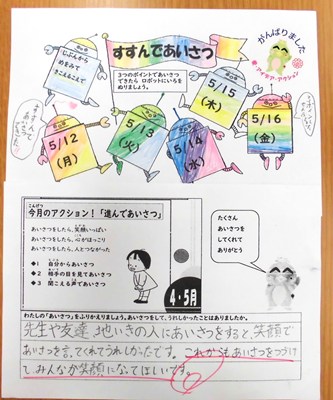 すすんであいさつ
がんばりました
アイキア・アクション
じぶんから
めをみて
きこえるこえで
3つのポイントであいさつ
できたら ロボットにいろを
ぬりましょう。
5/12
(月)
5/13
(火)
5/14
(水)
5/15
(木)
5/16
(金)
こんげつ
今月のアクション!「進んであいさつ」
あいさつをしたら、笑顔いっぱい
あいさつをしたら、心がほっこり
あいさつをしたら、人とつながった
◆1 自分からあいさつ
◆2 相手の目を見てあいさつ
◆3 聞こえる声であいさつ
4・5月
たくさん
あいさつを
してくれて
ありがとう
わたしの「あいさつ」をふりかえりましょう。あいさつをして、うれしかったことはありましたか。
先生や友達、地いきの人にあいさつをすると、笑顔で
あいさつを言ってくれてうれしかったです。これからもあいさつをつづけ
て、みんなが笑顔になってほしいです。